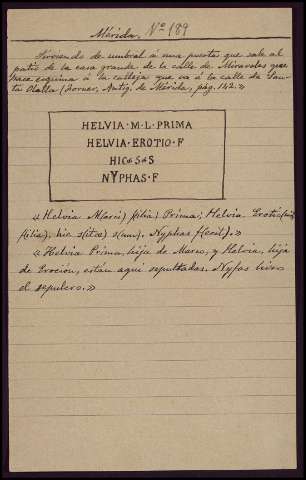 Mérida. Nº 189
Sirviendo de umbral á una puerta que sale al
patio de la casa grande de la calle de Miraveles que
hace esquina á la calleja que va á la calle de San-
ta Olalla (Forner, Antig. de Mérida, pág. 142.»
HELVIA · M · L · PRIMA
HELVIA · EROTIO · F
HIC S S
NYPHAS · F
«Helvia M(arci) filia) Prima; Helvia Erotio(nis)
f(ilia). hic s(itæ) s(unt). Nyphas f(ecit).»
«Helvia Prima, hija de Marco, y Helvia, hija
de Eroción, están aquí sepultadas. Nyfas hizo
el sepulcro.»